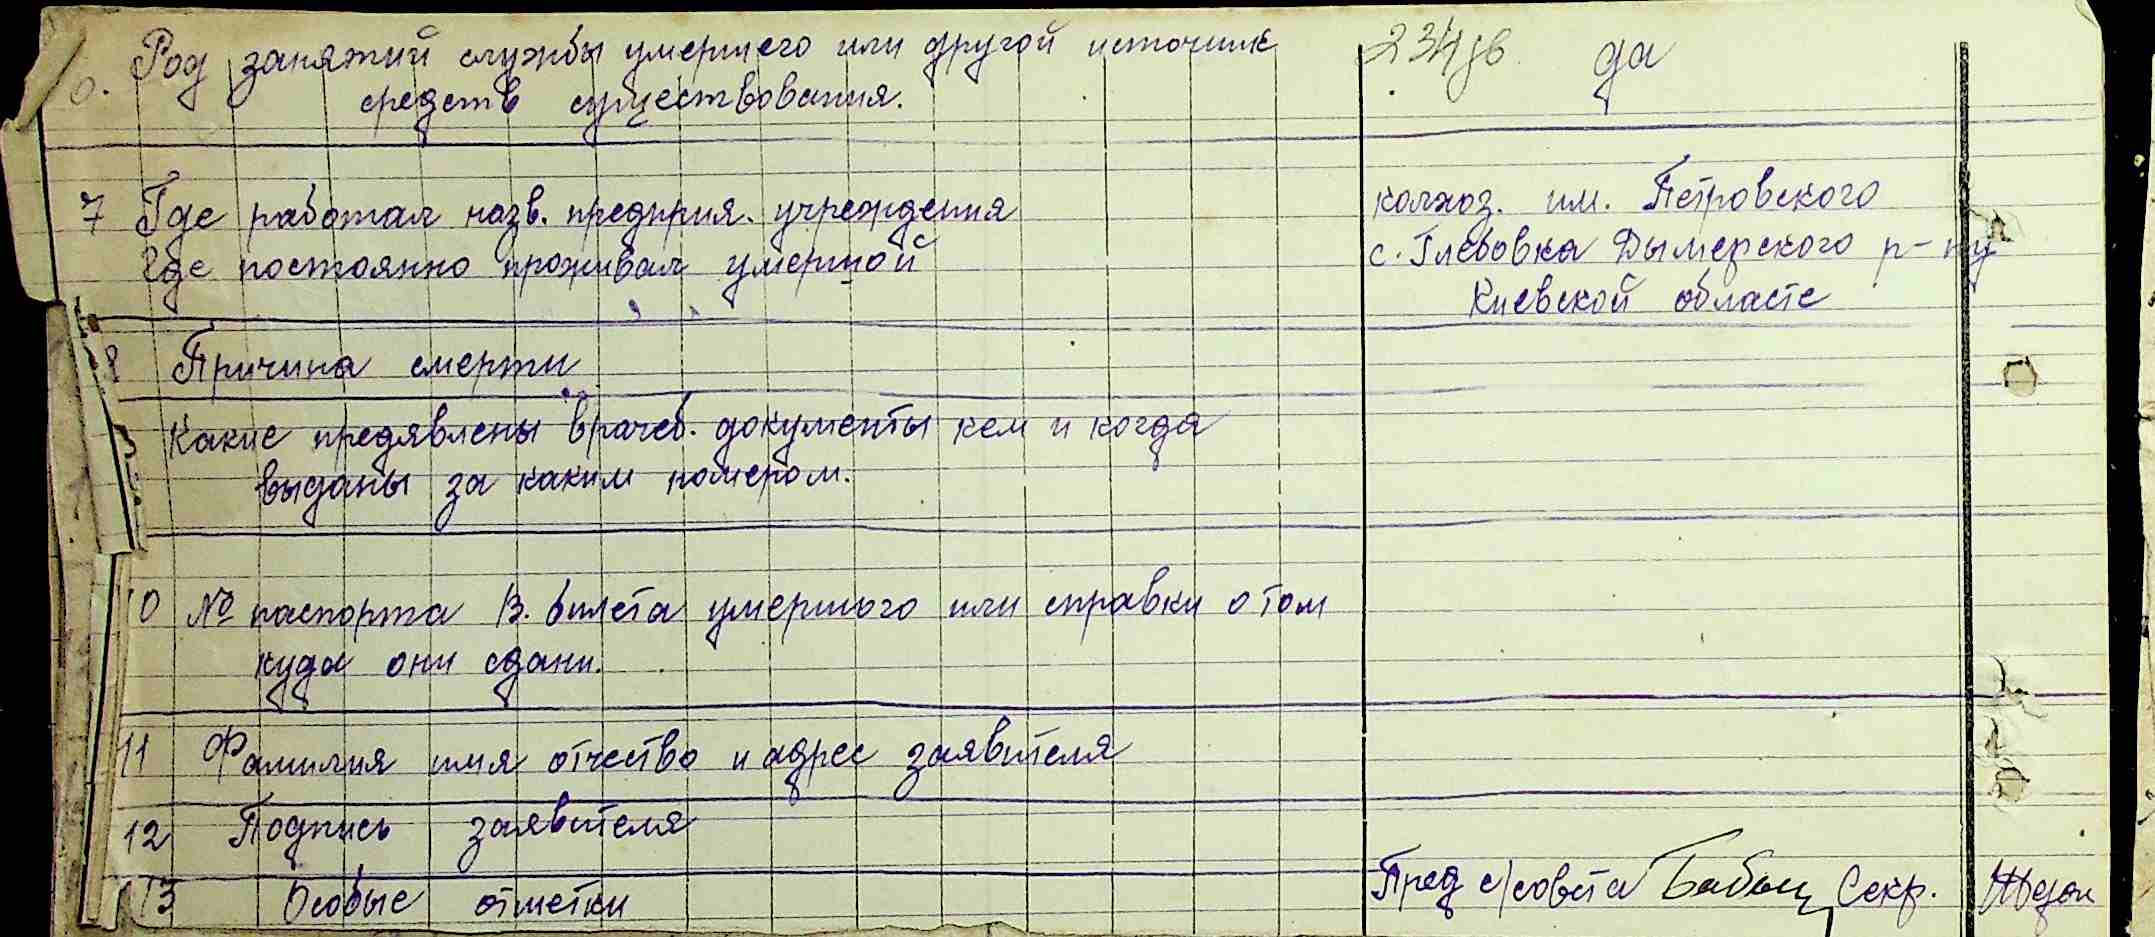 6. Род занятий службы умершего или другой источник
средств существования.
да
7 Где работал назв. предприя. учреждения
где постоянно проживал умерший
колхоз. им. Петровского
с. Глебовка Дымерского р-ну
Киевской областе
8 Причина смерти
Какие предявлены врачеб. документы кем и когда
выданы за каким номером.
10 № паспорта В. билета умершого или справки о том
куда они сдани.
11 Фамилия имя отчество и адрес заявителя
12 Подпись заявителя
13 Особые отметки
Пред с/совета Секр.